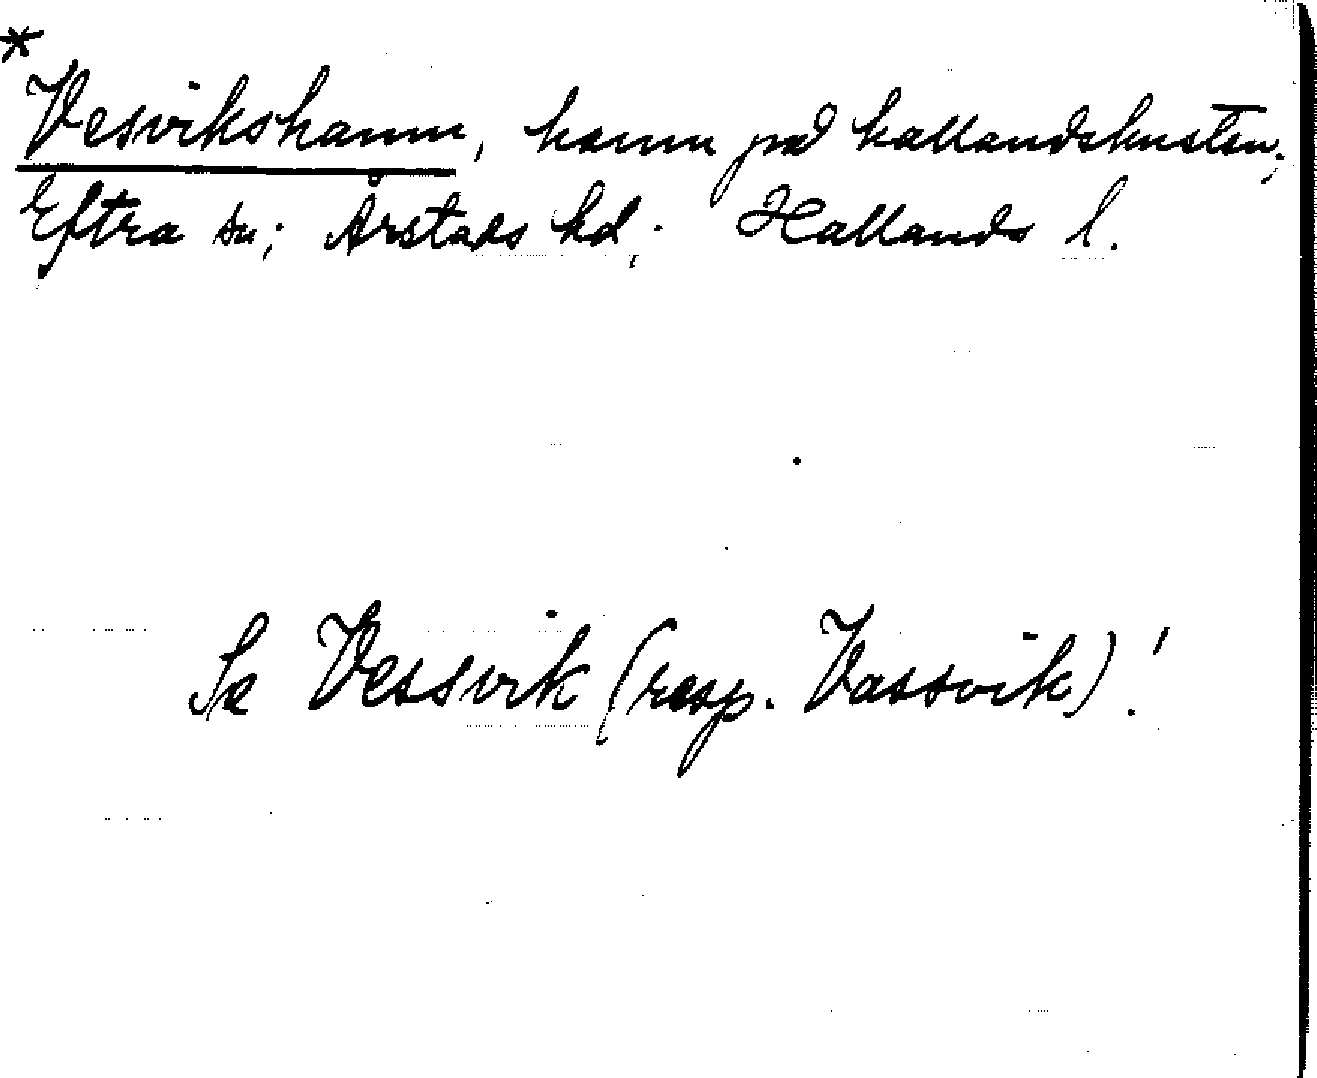 *
Vesvikshamn, hamn på hallandskusten;
Eftra sn; Årstads hd; Hallands l.
Se Vessvik (resp. Vassvik)!